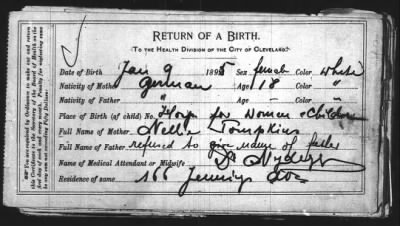 RETURN OF A BIRTH.
(TO THE HEALTH DIVISION OF THE CITY OF CLEVELAND.)
Date of Birth Jan 9 1895 Sex female Color white
Nativity of Mother German Age 18 Color "
Nativity of Father " Age Color "
Place of Birth (of child) No. for Woman & Children
Full Name of Mother Nellie Tompkins
Full Name of Father refused to give name of father
Name of Medical Attendant or Midwife Dr
Residence of same 166 Jennings Ave
You are required by Ordinance to make out and return
this Certificate to the Secretary of the Board of Health on the
first day of each and every month. Penalty for neglecting same
Fifty Dollars